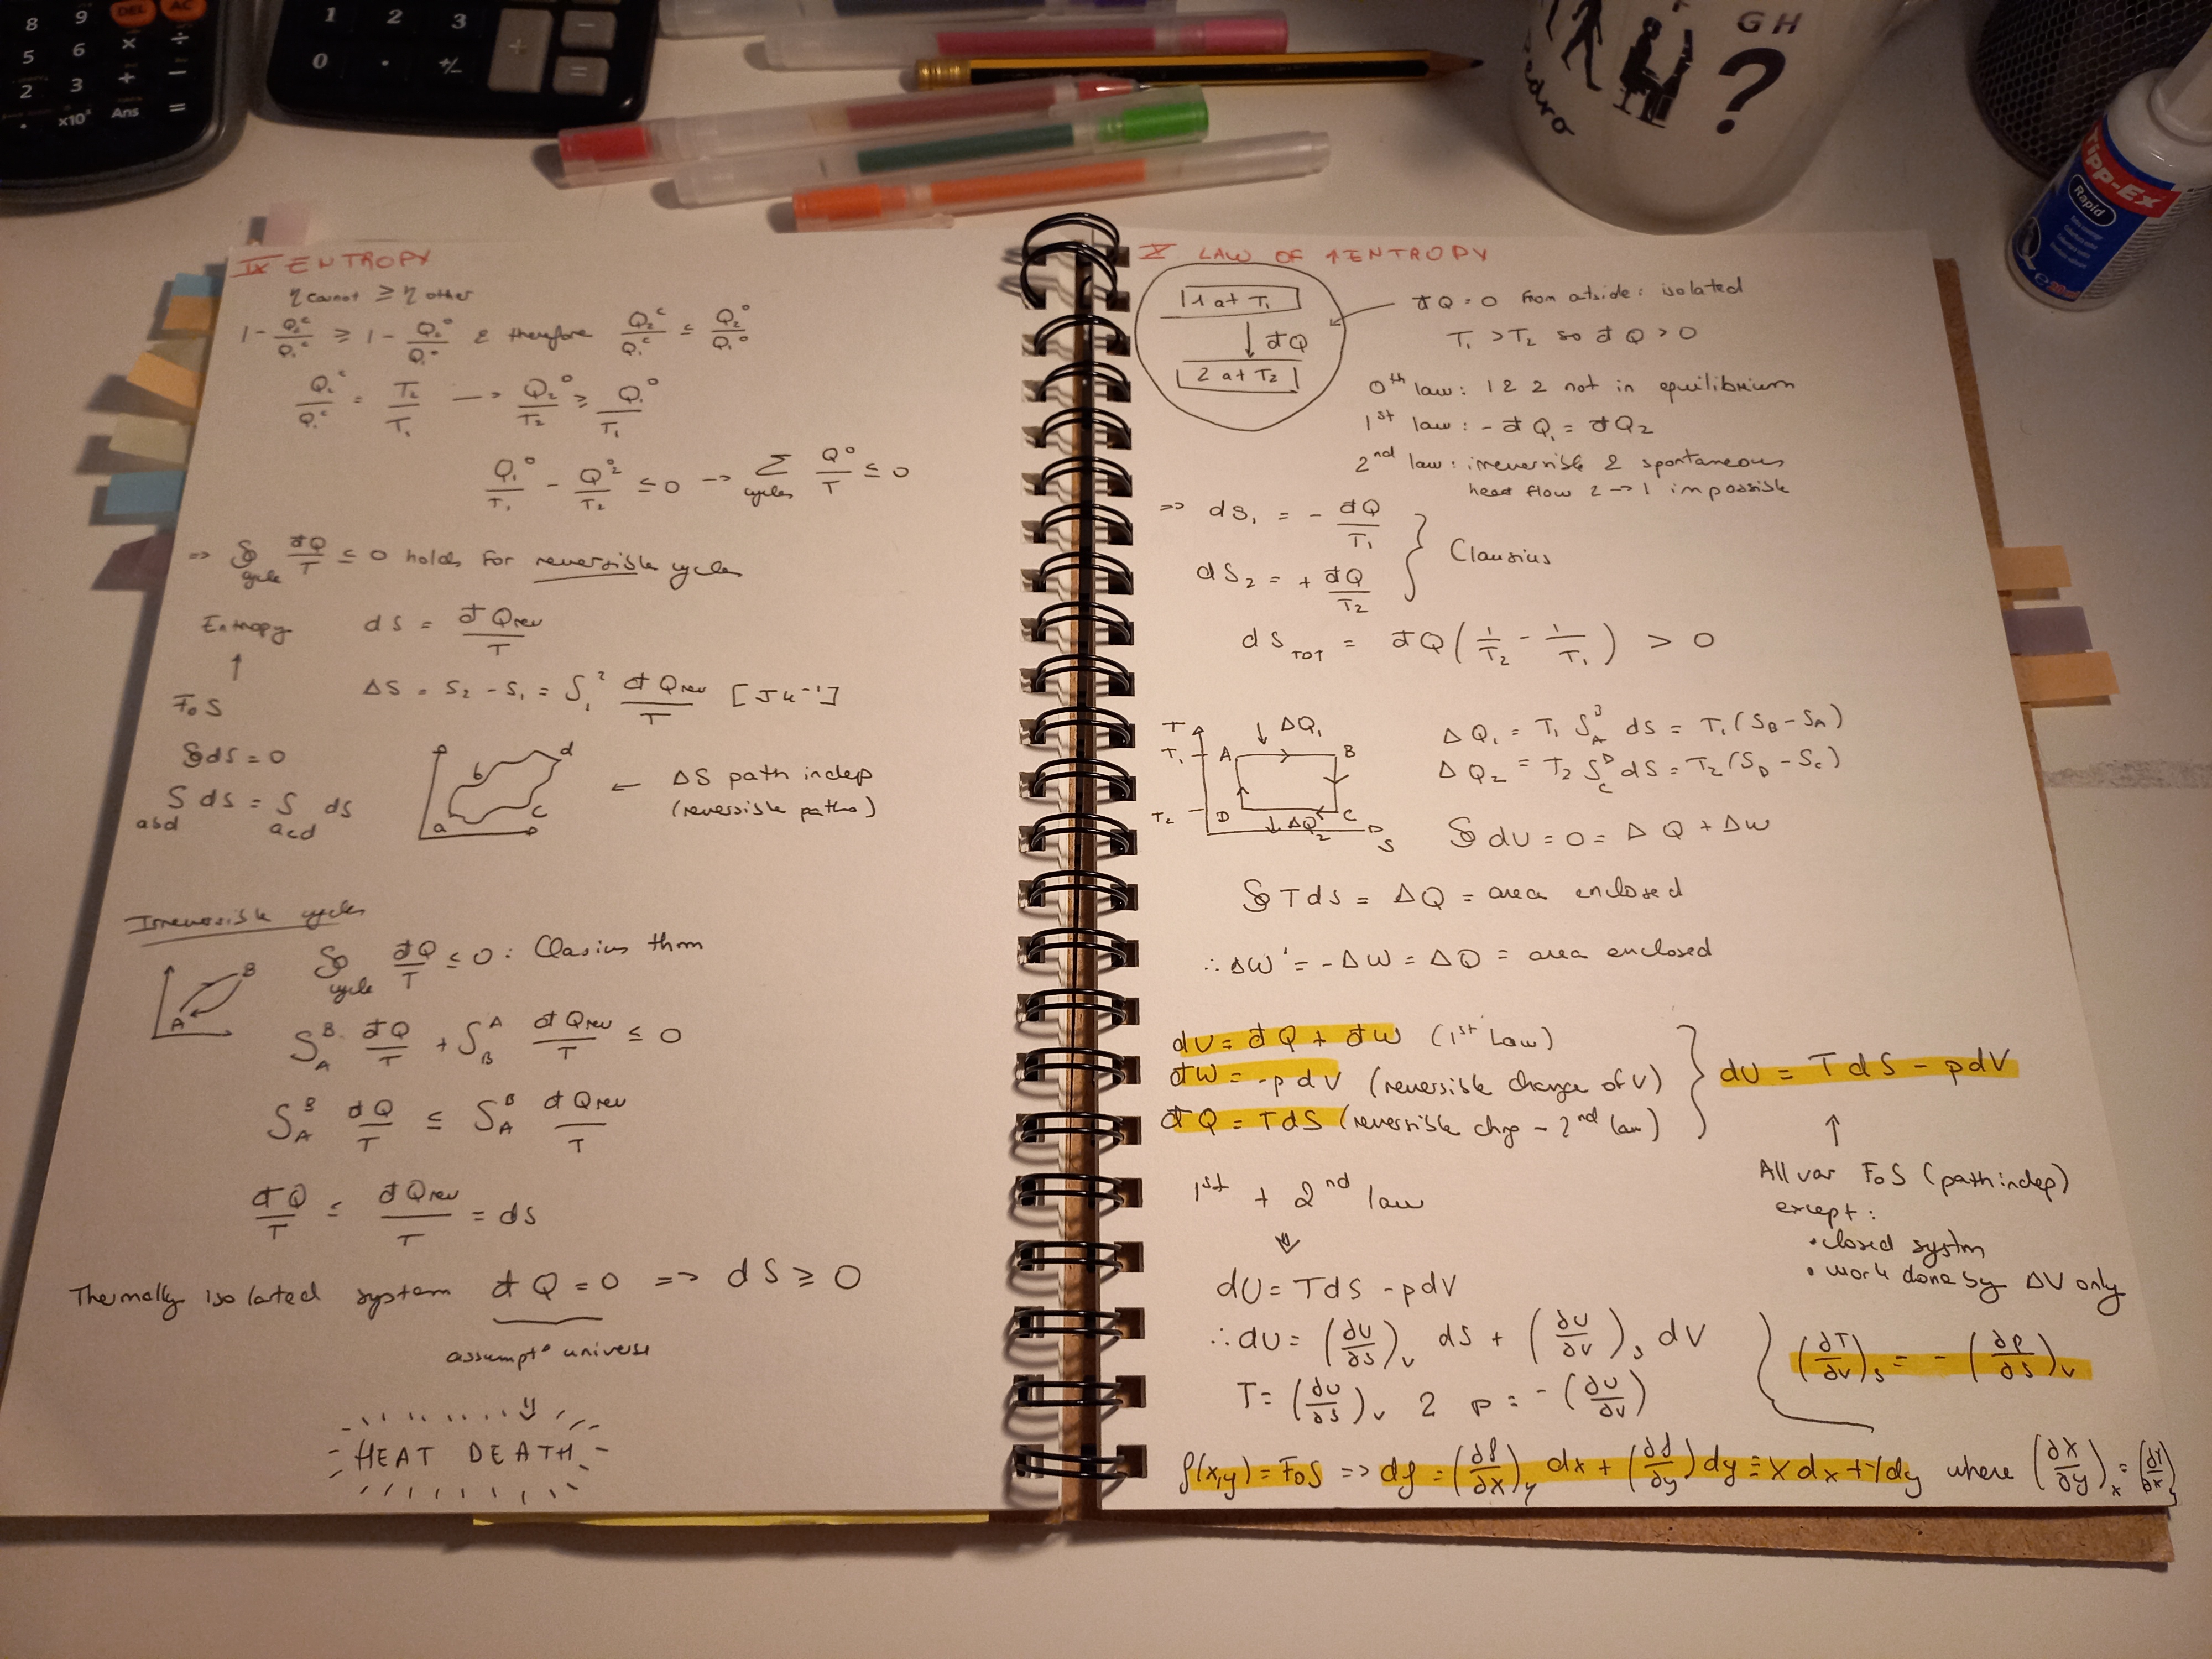 IX ENTROPY
η cannot ≥ η other
1 - Q₂ᶜ/Q₁ᶜ ≥ 1 - Q₂⁰/Q₁⁰ & therefore Q₂ᶜ/Q₁ᶜ ≤ Q₂⁰/Q₁⁰
Q₂ᶜ/Q₁ᶜ = T₂/T₁ → Q₂⁰/T₂ ≥ Q₁⁰/T₁
Q₁⁰/T₁ - Q₂⁰/T₂ ≤ 0 → Σ cycles Q⁰/T ≤ 0
=> ∮cycle đQ/T ≤ 0 holds for reversible cycles
Entropy dS = đQrev/T
↑
FoS ΔS = S₂ - S₁ = ∫₁² đQrev/T [JK⁻¹]
∮dS = 0
∫abd dS = ∫acd dS
a b c d
← ΔS path indep
(reversible paths)
Irreversible cycles
∮cycle đQ/T ≤ 0 : Clasius thm
A B
∫A^B đQ/T + ∫B^A đQrev/T ≤ 0
∫A^B đQ/T ≤ ∫A^B đQrev/T
đQ/T ≤ đQrev/T = dS
Thermally isolated system đQ = 0 => dS ≥ 0
assumptᵒ universe
HEAT DEATH
X LAW OF ↑ENTROPY
1 at T₁
↓ đQ
2 at T₂
đQ = 0 from outside: isolated
T₁ > T₂ so đQ > 0
0th law: 1 & 2 not in equilibrium
1st law: -đQ₁ = đQ₂
2nd law: irreversible & spontaneous
heat flow 2→1 impossible
=> dS₁ = - đQ/T₁
dS₂ = + đQ/T₂ } Clausius
dS TOT = đQ (1/T₂ - 1/T₁) > 0
T T₁ A ↓ΔQ₁ B
T₂ D ↓ΔQ₂ C S
ΔQ₁ = T₁ ∫A^B dS = T₁(S_B - S_A)
ΔQ₂ = T₂ ∫C^D dS = T₂(S_D - S_C)
∮dU = 0 = ΔQ + ΔW
∮TdS = ΔQ = area enclosed
∴ ΔW' = -ΔW = ΔQ = area enclosed
dU = đQ + đW (1st law)
đW = -pdV (reversible change of V)
đQ = TdS (reversible chg - 2nd law)
} dU = TdS - pdV
↑
All var FoS (path indep)
except:
• closed system
• work done by ΔV only
1st + 2nd law
↓
dU = TdS - pdV
∴ dU = (∂U/∂S)v dS + (∂U/∂V)s dV
T = (∂U/∂S)v & p = -(∂U/∂V)
(∂T/∂V)s = -(∂p/∂S)v
f(x,y) = FoS => df = (∂f/∂x)y dx + (∂f/∂y) dy = Xdx + Ydy where (∂X/∂y)x = (∂Y/∂x)y
8 9 DEL AC
5 6 × ÷
2 3 + −
• ×10ˣ Ans =
1 2 3
0 • +/-
+ − =
edro
GH
?
Tipp-Ex
Rapid